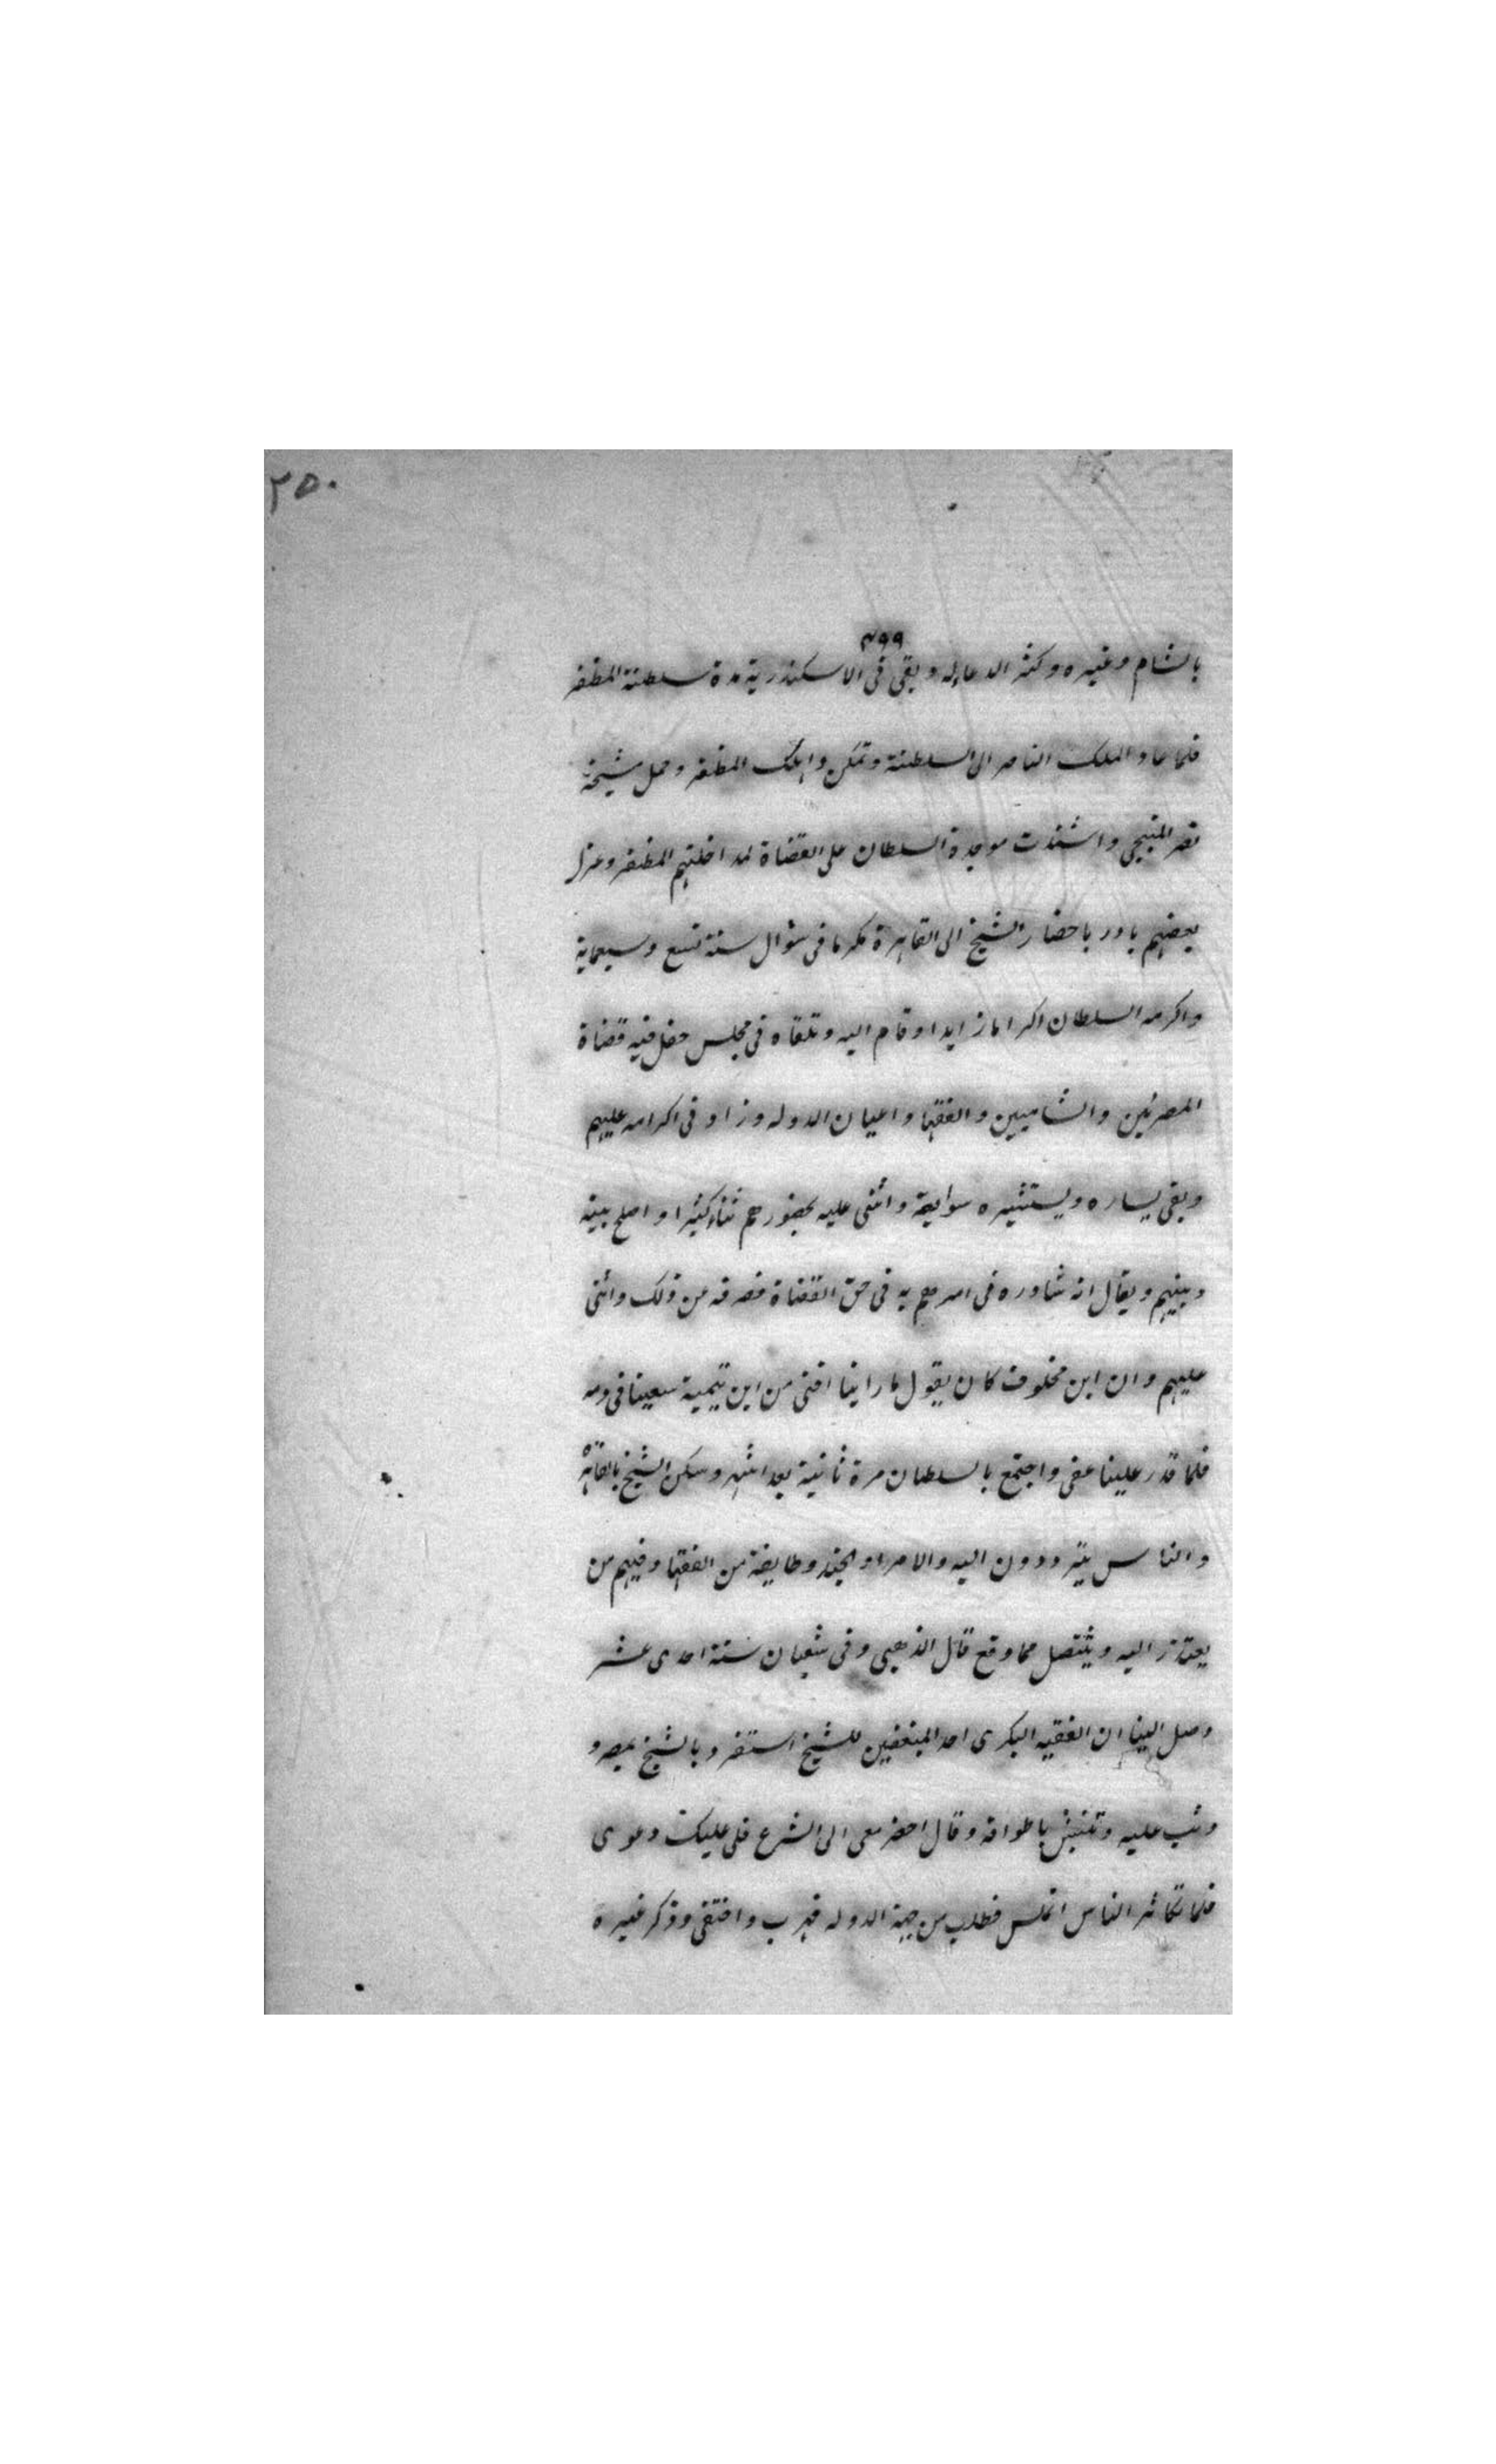 ٢٥٠
٤٩٩
بالشام وغيره وكثر الدعا له وبقى فى الاسكندرية مدة سلطنة المظفر
فلما عاد الملك الناصر الى السلطنة وتمكن واهلك المظفر وحمل شيخه
نصر المنبجى واشتدت موجدة السلطان على القضاة لمداخلتهم المظفر وعزل
بعضهم بادر باحضار الشيخ الى القاهرة مكرما فى شوال سنة تسع وسبعماية
واكرمه السلطان اكراما زايدا وقام اليه وتلقاه فى مجلس حفل فيه قضاة
المصريين والشاميين والفقها واعيان الدوله وزاد فى اكرامه عليهم
وبقى يساره ويستشيره سوايعة واثنى عليه بحضورهم ثناء كثيرا واصلح بينه
وبينهم ويقال انه شاوره فى امر هم به فى حق القضاة فصرفه عن ذلك واثنى
عليهم وان ابن مخلوف كان يقول ما راينا افتى من ابن تيمية سعينا فى دمه
فلما قدر علينا عفى واجتمع بالسلطان مرة ثانية بعد اشهر وسكن الشيخ بالقاهرة
والناس يترددون اليه والامرا والجند وطايفة من الفقها وفيهم من
يعتذر اليه ويتنصل مما وقع قال الذهبى وفى شعبان سنة احدى عشر
وصل الينا ان الفقيه البكرى احد المبغضين للشيخ استفرد بالشيخ بمصر و
وثب عليه وتنتش باطواقه وقال احضر معى الى الشرع فلى عليك دعوى
فلما تكاثر الناس انملس فطلب من جهة الدوله فهرب واختفى وذكر غيره